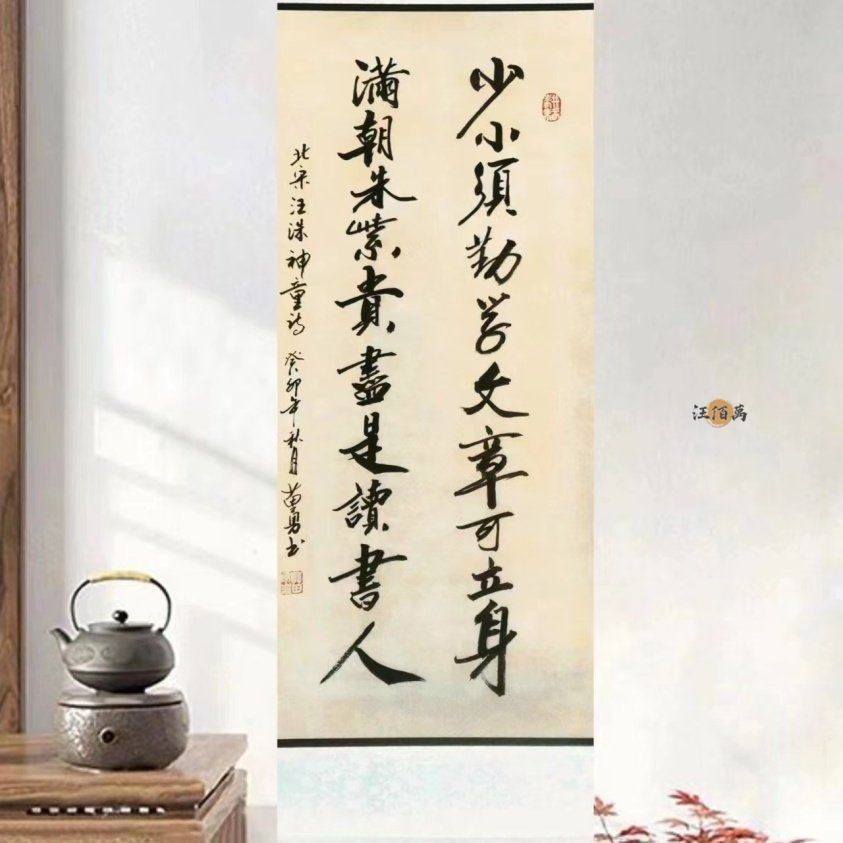 少小須勤学文章可立身
滿朝朱紫貴盡是讀書人
北宋汪洙神童詩 癸卯年秋月 苗勇书
汪佰萬